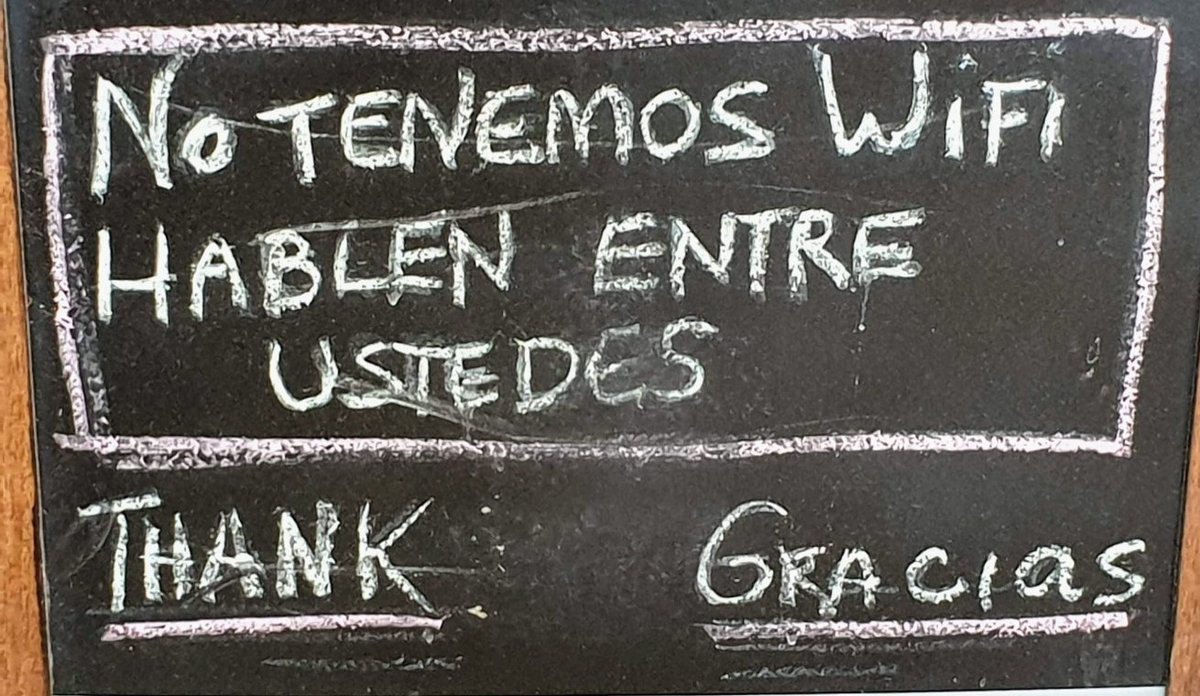 No TENEMOS WiFi
HABLEN ENTRE
USTEDES
THANK GRACIas